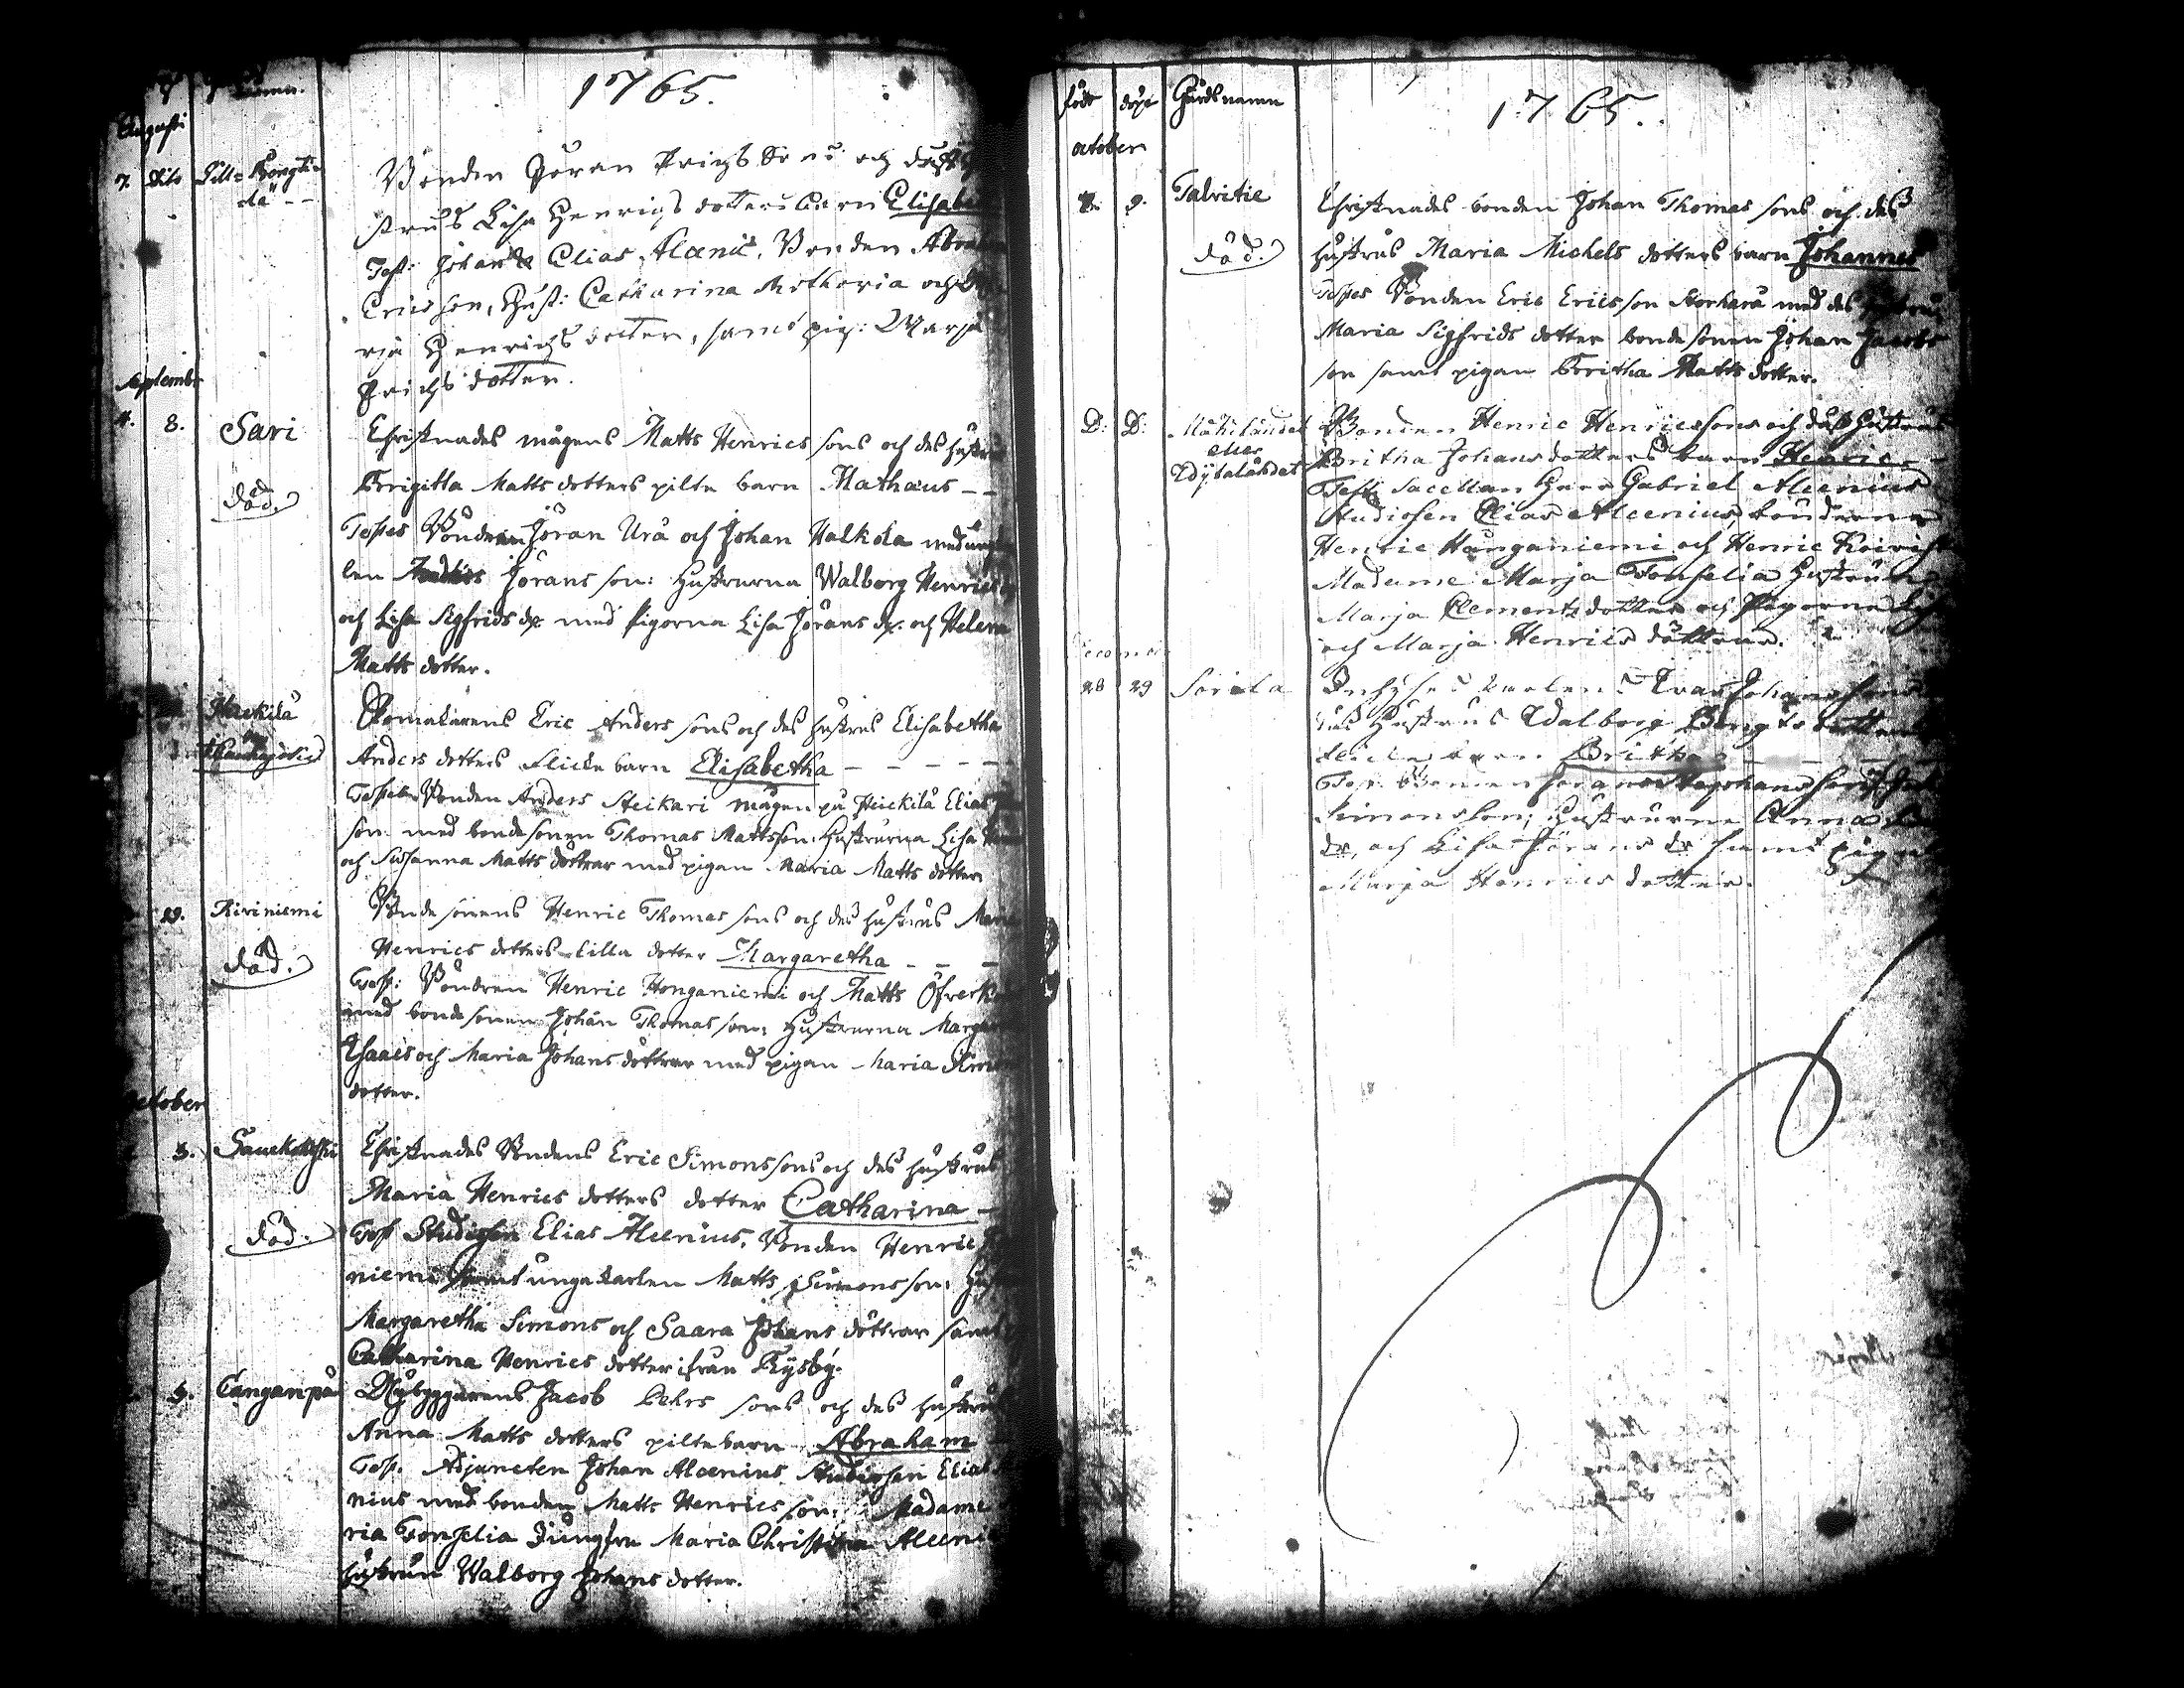 1765.
Augusti
7. dito Lill=Bengti=
lä --
Bonden Jöran Erichs Sons och dess hu
strus Lisa Henrichs dotters barn Elisabe
Test: Johan & Elias Alcenis, Bonden Abraha
Ericsson, Hust: Catharina Mathesia och
rja Henrichs dotter, samt pig: Marja
Erichs dotter.
September
4. 8. Sari
död.
Christnades mågens Matts Henrics sons och des hustrus
Brigitta Matts dotters pilte barn Mathæus --
Testes Bönderna Jöran Ura och Johan Halkola med ung
len Jörans son: hustrurna Walborg Henrics
och Lisa Sigfrids dr. med pigorna Lisa Jörans dr. och Helena
Matts dotter.
Heickilä
Eric Anders sons och des hustrus Elisabetha
Anders dotters flicke barn Elisabetha - - - - -
Testes Bonden Anders Steikari mågen på Heickilä Elias
son med bondesonen Thomas Mattsson: Hustrurna Lisa
och Susanna Matts döttrar med pigan Maria Matts dotter
29. Kiviniemi
död.
Bonde sonens Henric Thomas sons och des hustrus Maria
Henrics dotters lilla dotter Margaretha - - -
Test: Bönderna Henric Honganiemi och Matts Öfver
med bonde sonen Johan Thomas son: Hustrurna Marga
Isaacs och Maria Johans döttrar med pigan Maria Simons
dotter.
October
3. Sauckokoski
död.
Christnades Bondens Eric Simons sons och des hustrus
Maria Henrics dotters dotter Catharina -
Test Studiosen Elias Alcenius, Bonden Henric
niemi samt unga karlen Matts Simons son: Hust
Margaretha Simons och Saara Johans döttrar samt
Catharina Henrics dotter ifrån Kysbÿ.
5. Canganpää
Nybyggarens Jacob Pehrs sons och des hustrus
Anna Matts dotters piltebarn Abraham
Test. Adjuncten Johan Alcenius Studiosen Elias
nius med bonden Matts Henrics son: Madame
ria Tonselia Jungfru Maria Christina Alceni
hustrun Walborg Johans dotter.
född döpt Gårds namn
1765.
October
8. 9. Talvitie
död.
Christnades bonden Johan Thomas sons och des
hustrus Maria Michels dotters barn Johannes
Testes Bonden Eric Ericsson Storhara med des hustru
Maria Sigfrids dotter bonde sonen Johan Jacobs
son samt pigan Britha Matts dotter.
D: D: Mökilandet
eller
Bonden Henric Henricssons och dess hustrus
Britha Johans dotters barn Henric -
Test: Sacellan Herr Gabriel Alcenius
Studiosen Elias Alcenius, bönderna
Henric Hånganiemi och Henric Koivisto
Madame Marja Tonselia Hustrun
Marja Clements dotter och Pigorna Lisa
och Marja Henrics döttrar.
28 29 Sorila
Inhyses karlens Ivar Johans sons
des hustrus Walborg Bengts dotters
flicke barn Britha -
Test Bonden Jöran
Simonsson; Hustrurna Anna
dr, och Lisa Jörans dr samt pigan
Marja Henrics dotter.